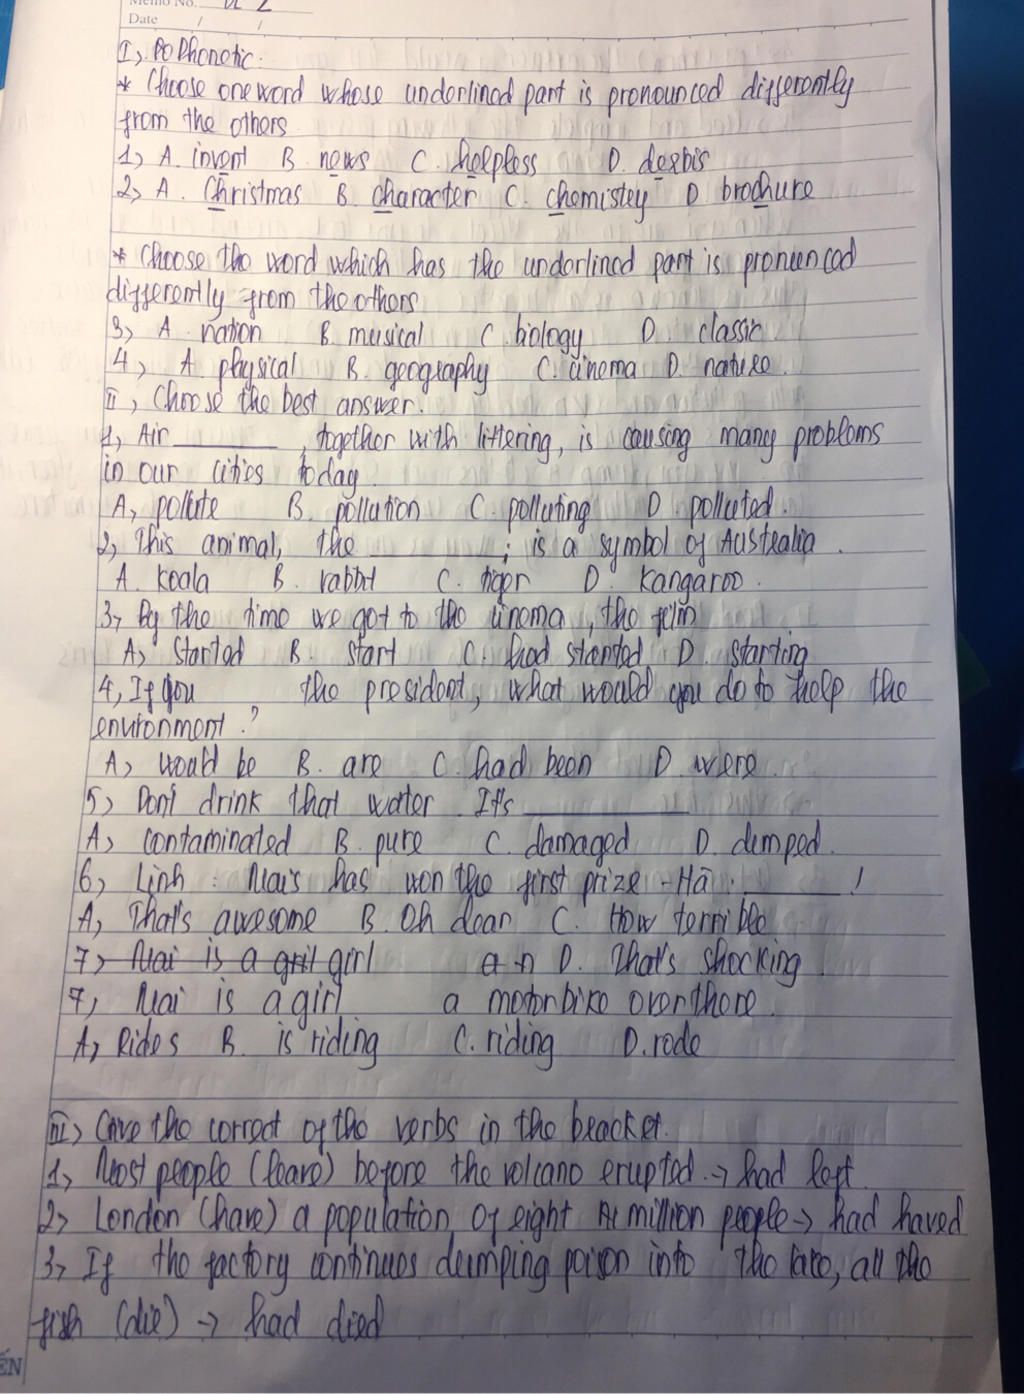 Memo No.
Date / /
I, Phonetic.
* Choose one word whose underlined part is pronounced differently
from the others
1, A. invent B. news C. helpless D. derbis
2, A. Christmas B. character C. chemistey D brochure
* Choose the word which has the underlined part is pronounced
differently from the others
3, A. nation B. musical C. biology D. classic
4, A. physical B. geography C. cinema D. nature.
II, Choose the best answer.
1, Air ______, together with littering, is causing many problems
in our cities today.
A, pollute B. pollution C. polluting D polluted.
2, This animal, the ______; is a symbol of Australia.
A. koala B. rabbit C. tiger D. kangaroo.
3, By the time we got to the cinema, the film
A, Started B. start C. had started D. starting
4, If you the president, what would you do to help the
environment?
A, would be B. are C. had been D were.
5, Don't drink that water. It's ______
A, contaminated B. pure C. damaged D. dumped.
6, Linh: Mai's has won the first prize - Hà: ______!
A, That's awesome B. Oh dear C. How terrible
7, Mai is a gril girl a n D. That's shocking
7, Mai is a girl a motorbike over there.
A, Rides B. is riding C. riding D. rode
III, Give the correct of the verbs in the bracket.
1, Most people (leave) before the volcano erupted. → had left.
2, London (have) a population of eight million people → had haved
3, If the factory continues dumping poison into the lake, all the
fish (die) → had died
ẾN